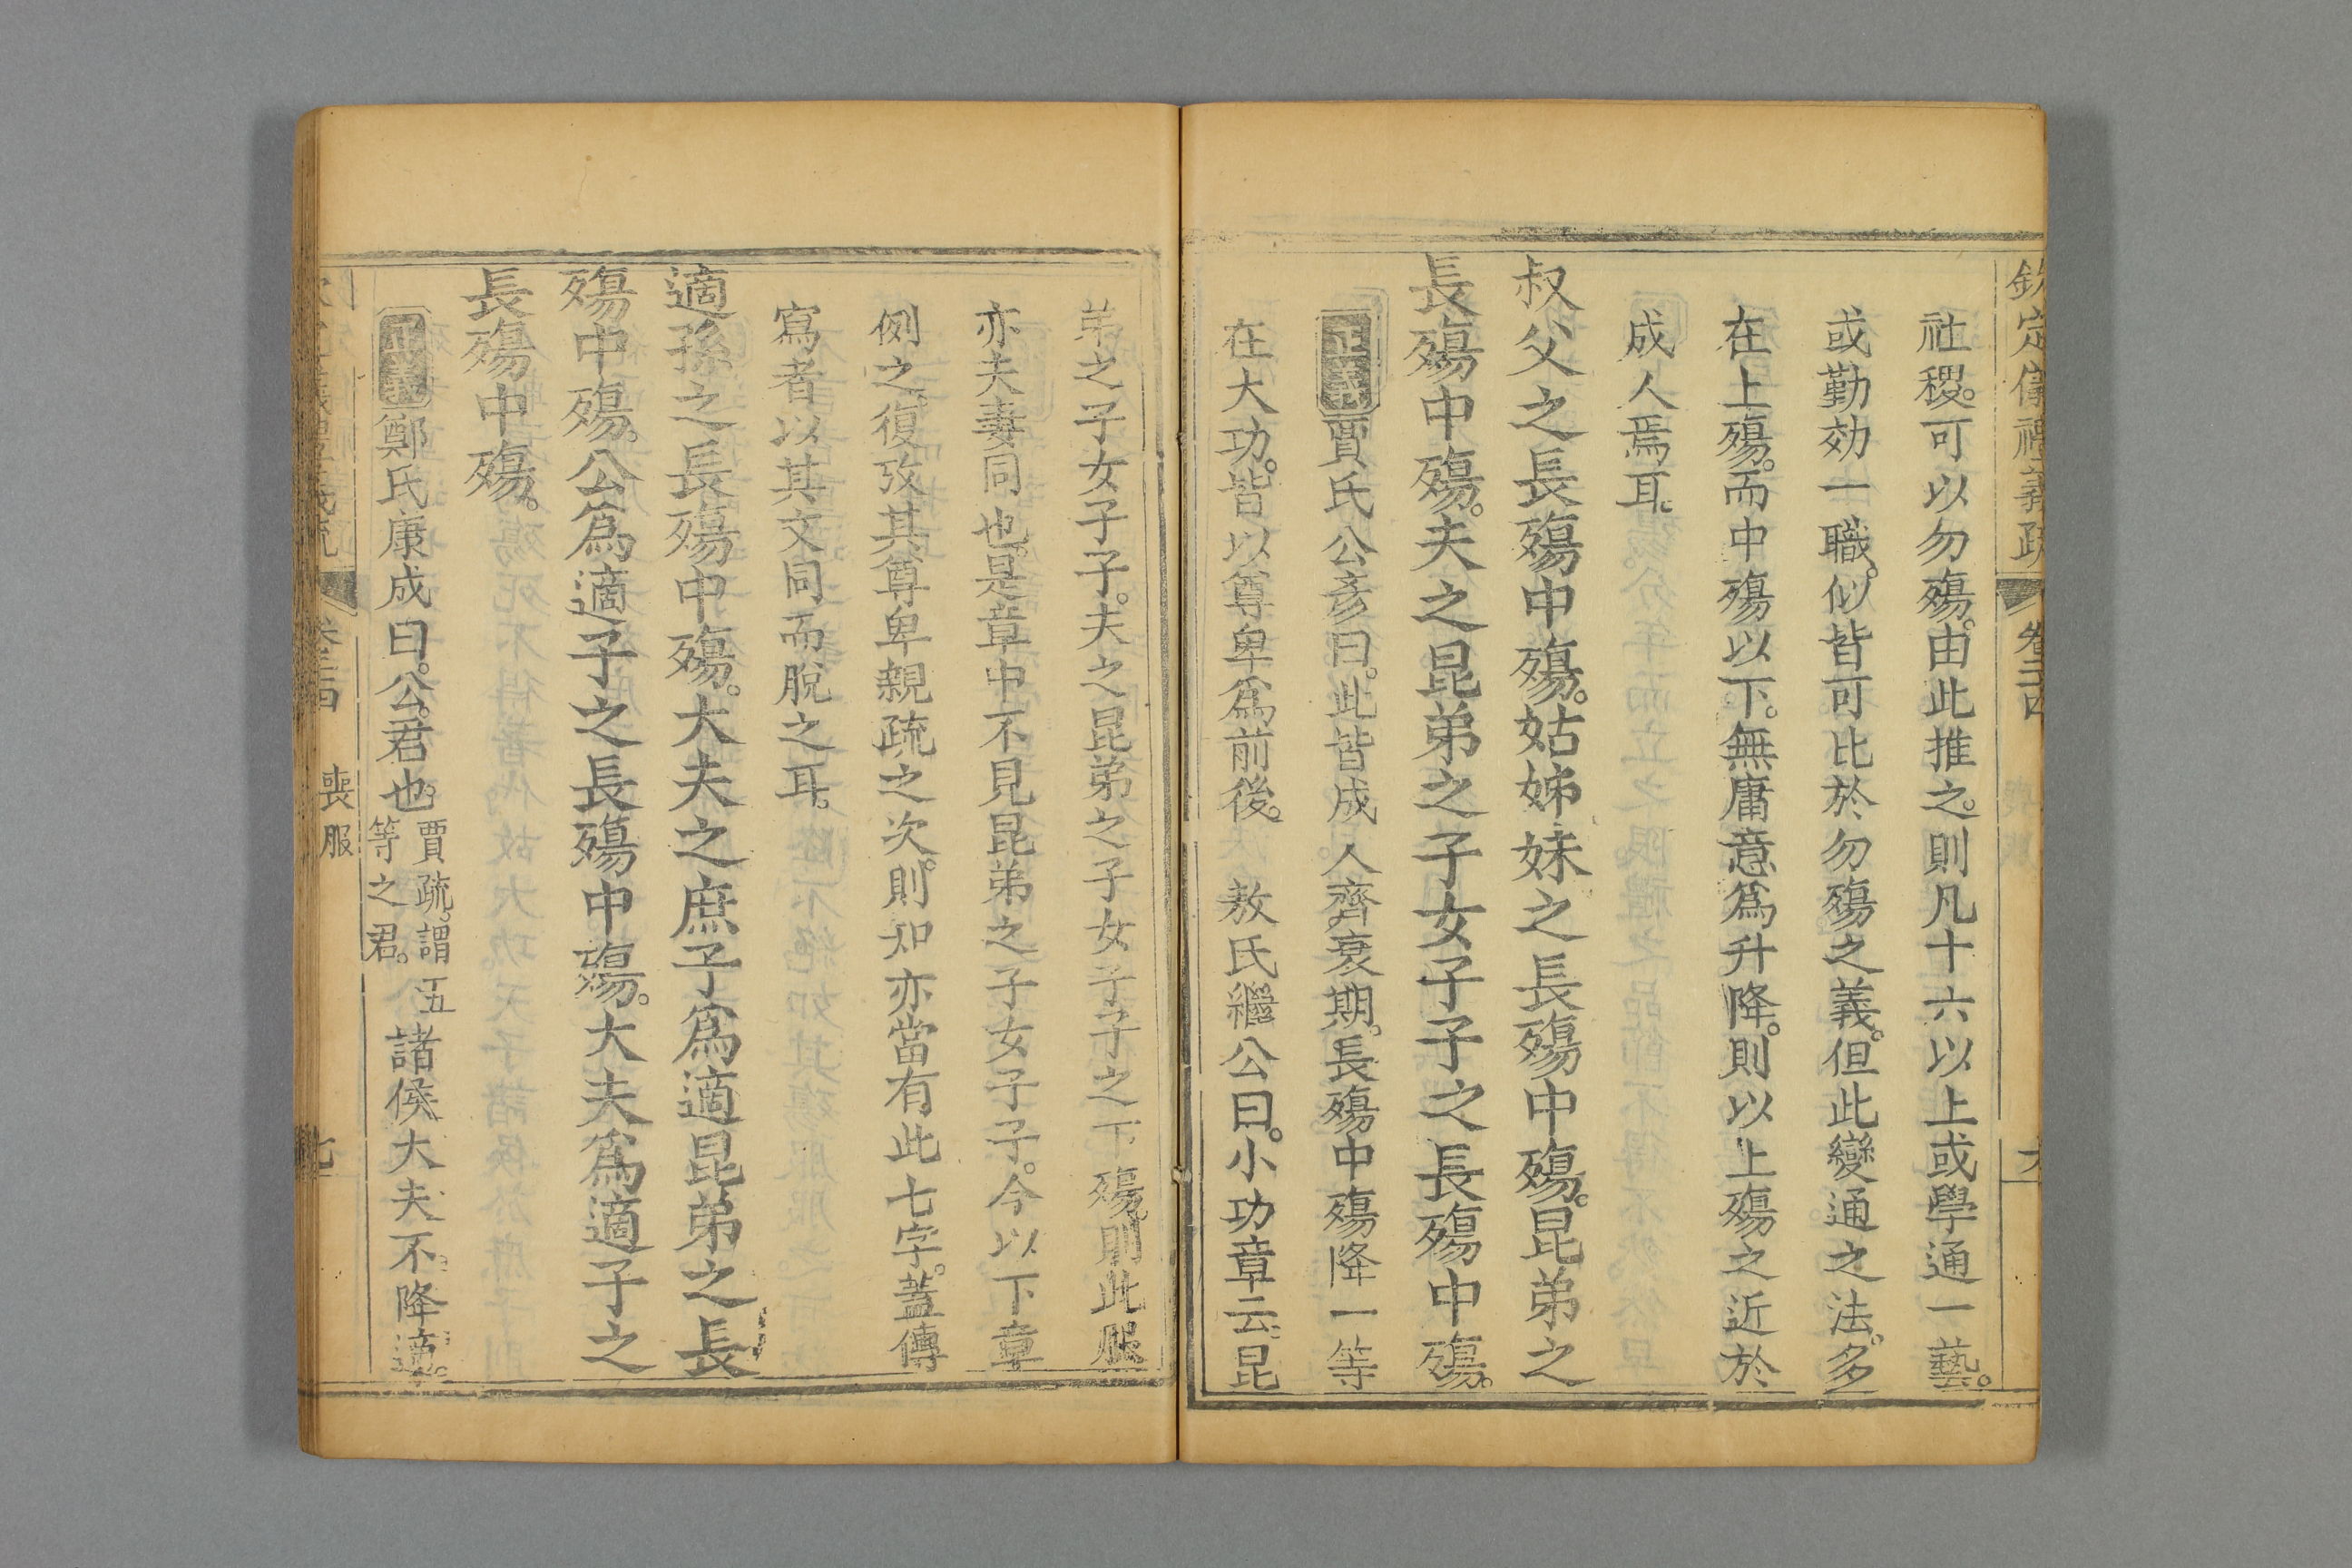 欽定儀禮義疏 卷二四
社稷。可以勿殤。由此推之。則凡十六以上或學通一藝。
或勤効一職。似皆可比於勿殤之義。但此變通之法。多
在上殤。而中殤以下。無庸意爲升降。則以上殤之近於
成人焉耳。
叔父之長殤中殤。姑姊妹之長殤中殤。昆弟之
長殤中殤。夫之昆弟之子女子子之長殤中殤。
正義賈氏公彥曰。此皆成人齊衰期。長殤中殤降一等
在大功。皆以尊卑爲前後。 敖氏繼公曰。小功章云。昆
弟之子女子子。夫之昆弟之子女子子之下殤。則此服
亦夫妻同也。是章中不見昆弟之子女子子。今以下章
例之。復攷其尊卑親疏之次。則知亦當有此七字。蓋傳
寫者以其文同而脫之耳。
適孫之長殤中殤。大夫之庶子爲適昆弟之長
殤中殤。公爲適子之長殤中殤。大夫爲適子之
長殤中殤。
正義鄭氏康成曰。公。君也。賈疏。謂五等之君。諸侯大夫不降適。
儀禮義疏 卷二四 喪服 七